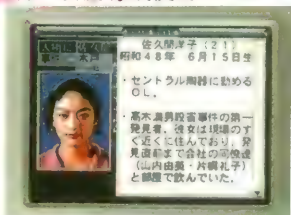 佐久間洋子(21)
昭和48年 6月15日生
・セントラル陶器に勤める
OL。
・高木満男殺害事件の第一
発見者。彼女は現場のす
ぐ近くに住んでおり、発
見直前まで会社の同僚達
(山内由美・片桐礼子)
と部屋で飲んでいた。